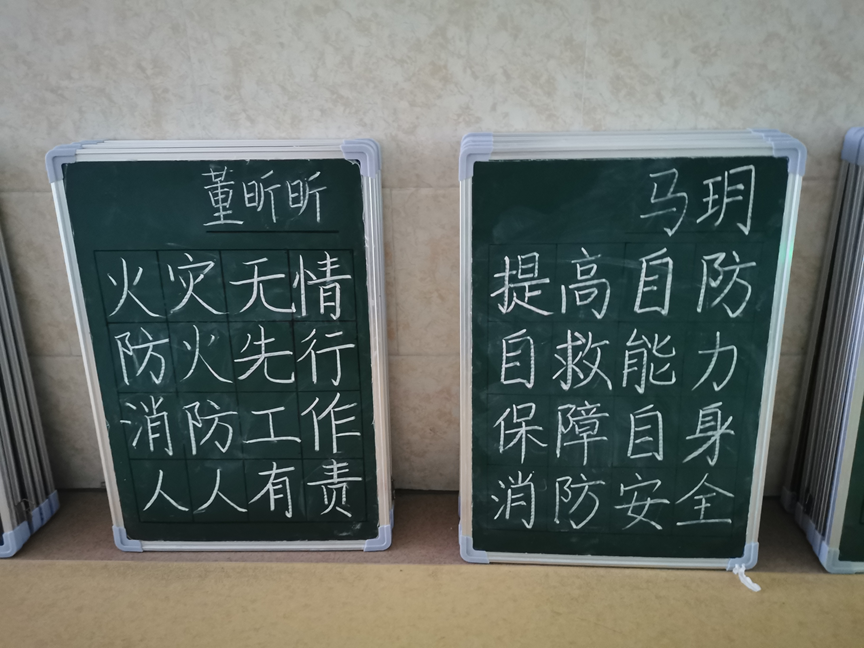 董昕昕
火灾无情
防火先行
消防工作
人人有责
马玥
提高自防
自救能力
保障自身
消防安全